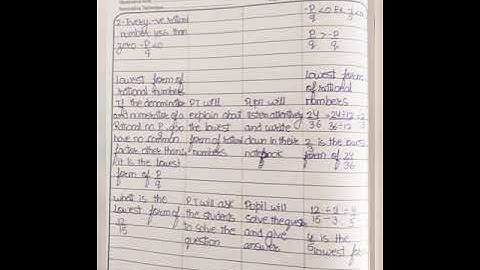 2. Every -ve rational
number less than
zero -P/q < 0
-P/q < 0
P/q > -P/q
lowest form of
rational numbers
If the denominator
and numerator of a
Rational no P/q
have no common
factor other than 1
it is the lowest
form of P/q
PT will
explain about
the lowest
form of rational
numbers
Pupil will
listen attentively
and write
down in their
notebook
lowest form
of rational
numbers
24/36 = 24÷12/36÷12 = 2/3
2/3 is the lowest
form of 24/36
what is the
lowest form of
12/15
PT will ask
the students
to solve the
question
Pupil will
solve the question
and give
answer
12/15 ÷ 3/3 = 4/5
4/5 is the
lowest form